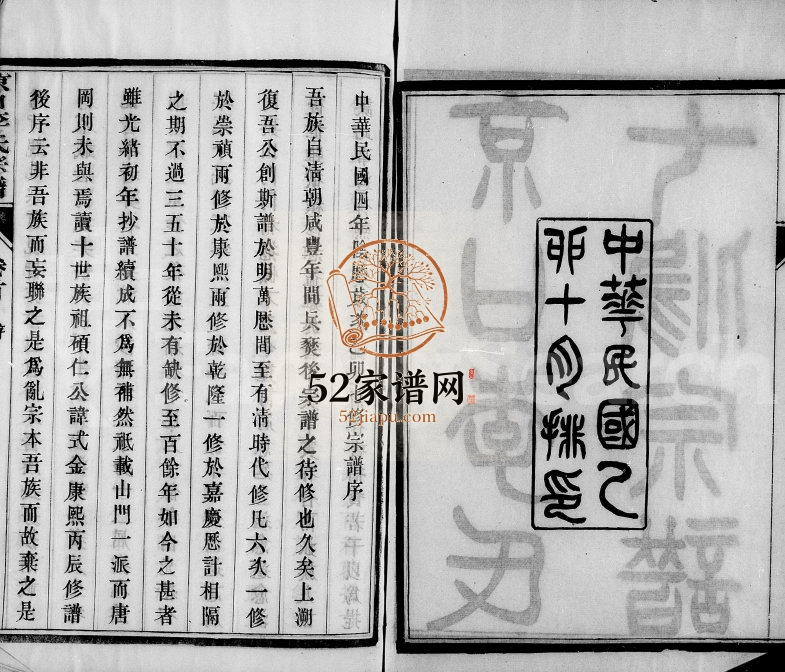 中華民國乙
卯十月排印
中華民國四年陰歷歲次乙卯七修宗譜序
吾族自清朝咸豐年間兵燹後宗譜之待修也久矣上溯
復吾公創斯譜於明萬厯間至有清時代修凡六次一修
於崇禎兩修於康熙兩修於乾隆一修於嘉慶厯計相隔
之期不過三五十年從未有缺修至百餘年如今之甚者
雖光緒初年抄譜續成不爲無補然祗載山門一派而唐
岡則未與焉讀十世族祖碩仁公諱式金康熙丙辰修譜
後序云非吾族而妄聯之是爲亂宗本吾族而故棄之是
52家谱网
52jiapu.com